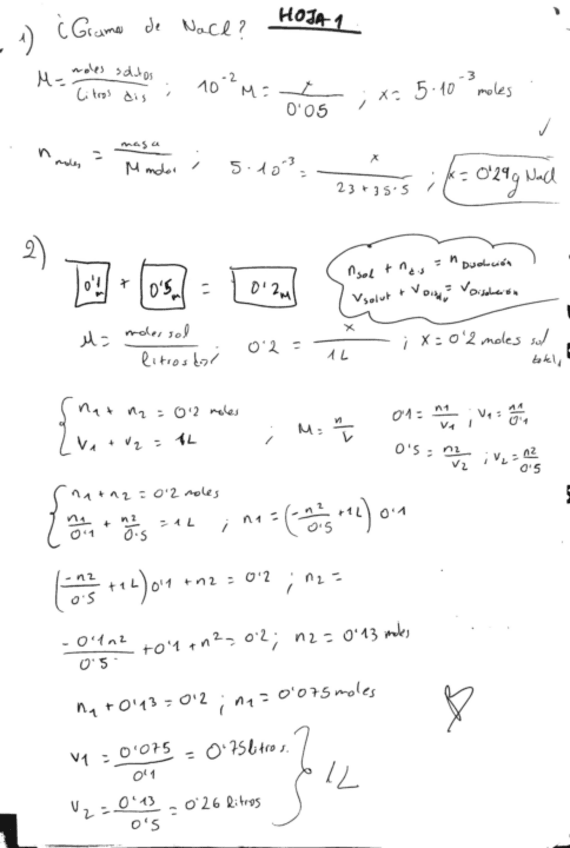 HOJA 1
1) ¿Gramos de NaCl?
M = moles soltos / Litros dis ; 10^-2 M = x / 0'05 ; x = 5·10^-3 moles
n moles = masa / M molar ; 5·10^-3 = x / 23+35'5 ; x = 0'29g NaCl
2)
0'1 M + 0'5 M = 0'2 M
n sol + n dis = n Disolución
V solut + V Disolv = V Disolución
M = moles sol / litros tot ; 0'2 = x / 1L ; x = 0'2 moles sol total
n1 + n2 = 0'2 moles
V1 + V2 = 1L ; M = n / V
0'1 = n1 / V1 ; V1 = n1 / 0'1
0'5 = n2 / V2 ; V2 = n2 / 0'5
n1 + n2 = 0'2 moles
n1 / 0'1 + n2 / 0'5 = 1L ; n1 = (-n2 / 0'5 + 1L) 0'1
(-n2 / 0'5 + 1L) 0'1 + n2 = 0'2 ; n2 =
-0'1n2 / 0'5 + 0'1 + n2 = 0'2 ; n2 = 0'13 moles
n1 + 0'13 = 0'2 ; n1 = 0'075 moles
V1 = 0'075 / 0'1 = 0'75 litros.
V2 = 0'13 / 0'5 = 0'26 litros
1L